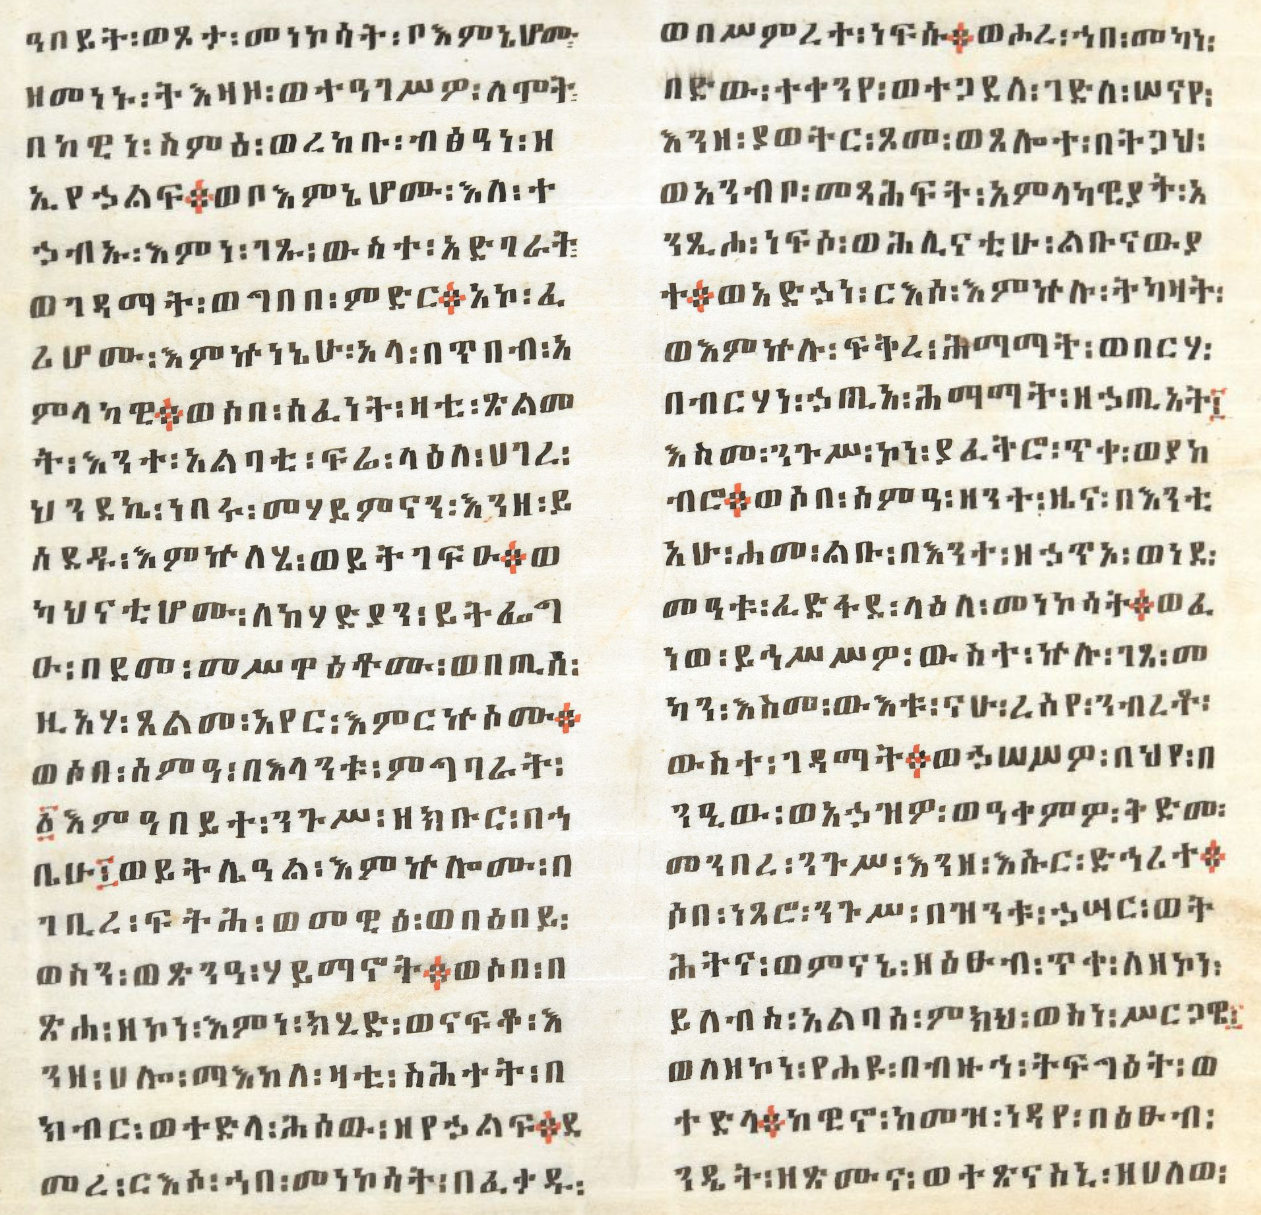 ዓበይት፡ወጾታ፡መነኮሳት፡ቦእምኔሆሙ፡
ዘመነኑ፡ትእዛዞ፡ወተዓገሥዎ፡ለሞት፡
በከዊነ፡ስምዕ፡ወረከቡ፡ብፅዓነ፡ዘ
ኢየኃልፍ።ወቦእምኔሆሙ፡እለ፡ተ
ኃብኡ፡እምነ፡ገጹ፡ውስተ፡አድባራት፡
ወገዳማት፡ወግበበ፡ምድር።አኮ፡ፈ
ሪሆሙ፡እምኵነኔሁ፡አላ፡በጥበብ፡አ
ምላካዊ።ወሰበ፡ሰፈነት፡ዛቲ፡ጽልመ
ት፡እንተ፡አልባቲ፡ፍሬ፡ላዕለ፡ሀገረ፡
ህንደኬ፡ነበሩ፡መሃይምናን፡እንዘ፡ይ
ሰደዱ፡እምኵለሄ፡ወይትገፍዑ።ወ
ካህናቲሆሙ፡ለከሃድያን፡ይትፌግ
ዑ፡በደመ፡መሥዋዕቶሙ፡ወበጢሰ፡
ዚአሃ፡ጸልመ፡አየር፡እምርኵሶሙ።
ወሶበ፡ሰምዓ፡በእላንቱ፡ምግባራት፡
፩እምዓበይተ፡ንጉሥ፡ዘክቡር፡በኀ
ቤሁ፤ወይትሌዓል፡እምኵሎሙ፡በ
ገቢረ፡ፍትሕ፡ወመዊዕ፡ወበዕበይ፡
ወስን፡ወጽንዓ፡ሃይማኖት።ወሶበ፡በ
ጽሐ፡ዘኮነ፡እምነ፡ክሂድ፡ወናፍቆ፡እ
ንዘ፡ሀሎ፡ማእከለ፡ዛቲ፡ስሕተት፡በ
ክብር፡ወተድላ፡ሕሰው፡ዘየኃልፍ።ደ
መረ፡ርእሶ፡ኀበ፡መነኮሳት፡በፈታዱ፡
ወበሥምረተ፡ነፍሱ።ወሖረ፡ኀበ፡መካነ፡
በድው፡ተቀንየ፡ወተጋደለ፡ገድለ፡ሠናየ፡
እንዘ፡ያወትር፡ጾመ፡ወጸሎተ፡በትጋህ፡
ወአንብቦ፡መጻሕፍት፡አምላካዊያት፡አ
ንጺሖ፡ነፍሶ፡ወሕሊናቲሁ፡ልቡናውያ
ተ።ወአድኃነ፡ርእሶ፡እምኵሉ፡ትካዛት፡
ወእምኵሉ፡ፍትረ፡ሕማማት፡ወበርሃ፡
በብርሃነ፡ኃጢአ፡ሕማማት፡ዘኃጢአት፤
እስመ፡ንጉሥ፡ኮነ፡ያፈትሮ፡ጥቀ፡ወያከ
ብሮ።ወሶበ፡ሰምዓ፡ዘንተ፡ዜና፡በእንቲ
አሁ፡ሐመ፡ልቡ፡በእንተ፡ዘኃጥኦ፡ወነደ፡
መዓቱ፡ፈድፋደ፡ላዕለ፡መነኮሳት።ወፈ
ነወ፡ይኅሥሥዎ፡ውስተ፡ኵሉ፡ገጸ፡መ
ካን፡እስመ፡ውእቱ፡ናሁ፡ረሰየ፡ንብረቶ፡
ውስተ፡ገዳማት።ወኃሠሥዎ፡በህየ፡በ
ንዒው፡ወአኃዝዎ፡ወዓቀምዎ፡ትድመ፡
መንበረ፡ንጉሥ፡እንዘ፡እሱር፡ድኅሪተ።
ሶበ፡ነጸሮ፡ንጉሥ፡በዝንቱ፡ኃሣር፡ወት
ሕትና፡ወምናኔ፡ዘዕፁብ፡ጥቀ፡ለዘኮነ፡
ይለብስ፡አልባሰ፡ምክህ፡ወስነ፡ሥርጋዌ፤
ወለዘኮነ፡የሐዩ፡በብዙኅ፡ትፍግዕት፡ወ
ተድላ።ከዊኖ፡ከመዝ፡ነዳየ፡በዕፁብ፡
ንዴት፡ዘጽሙና፡ወተጽናስኒ፡ዘሀለወ፡